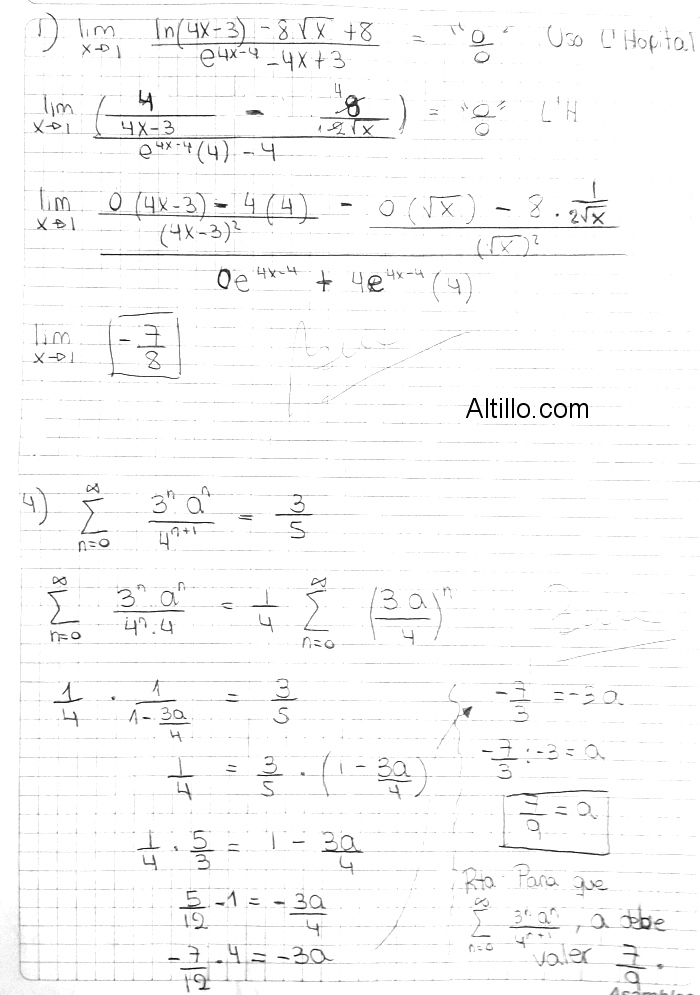 1) lim x→1 (ln(4x-3) - 8√x + 8) / (e^(4x-4) - 4x + 3) = "0/0" Uso L'Hopital
lim x→1 (4/(4x-3) - 8/(2√x)) / (e^(4x-4)(4) - 4) = "0/0" L'H
lim x→1 ((0(4x-3) - 4(4))/(4x-3)² - (0(√x) - 8 · 1/(2√x))/(√x)²) / (0e^(4x-4) + 4e^(4x-4)(4))
lim x→1 -7/8
Altillo.com
4) ∑ n=0 ∞ 3ⁿ aⁿ / 4ⁿ⁺¹ = 3/5
∑ n=0 ∞ 3ⁿ aⁿ / 4ⁿ·4 = 1/4 ∑ n=0 ∞ (3a/4)ⁿ
1/4 · 1/(1 - 3a/4) = 3/5
1/4 = 3/5 · (1 - 3a/4)
1/4 · 5/3 = 1 - 3a/4
5/12 - 1 = -3a/4
-7/12 · 4 = -3a
-7/3 = -3a
-7/3 : -3 = a
7/9 = a
Rta Para que
∑ n=0 ∞ 3ⁿ aⁿ / 4ⁿ⁺¹, a debe
valer 7/9.